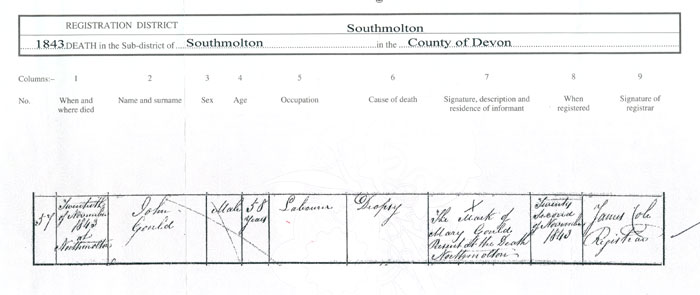 REGISTRATION DISTRICT
Southmolton
1843 DEATH in the Sub-district of Southmolton in the County of Devon
Columns:- 1 2 3 4 5 6 7 8 9
No. When and where died Name and surname Sex Age Occupation Cause of death Signature, description and residence of informant When registered Signature of registrar
57
Twentieth
of November
1843
at
Northmolton
John
Gould
Male
58
Years
Labourer
Dropsy
X
The Mark of
Mary Gould
Present at the Death
Northmolton
Twenty
Second
of November
1843
James Cole
Registrar